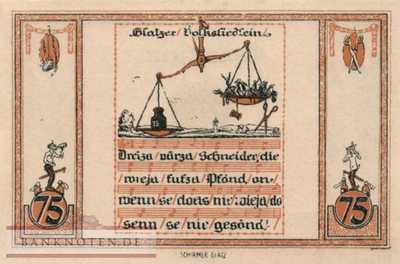 Glatzer Volksliedlein
15
Dreiza/värza/Schneider,die
wieja/fufza/Pfond/on/
wenn/se/doas/nie/wieja/do
senn/se/nie/gesond!
75
75
BANKNOTEN.DE
SCHIRMER GLATZ